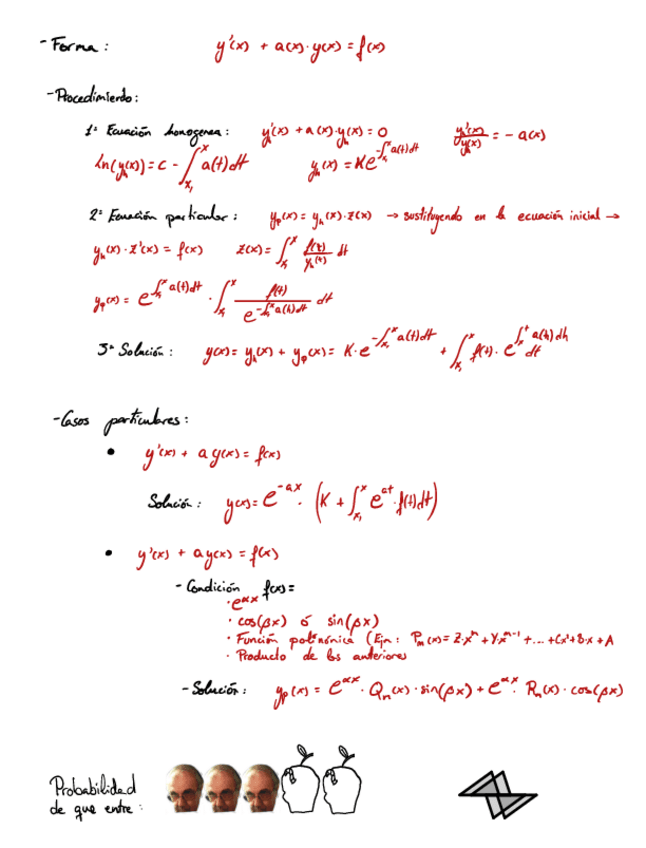 - Forma: y'(x) + a(x)·y(x) = f(x)
- Procedimiento:
1º Ecuación homogenea: y_h'(x) + a(x)·y_h(x) = 0 y_h'(x)/y_h(x) = - a(x)
Ln(y_h(x)) = c - ∫_{x₁}^{x} a(t)dt y_h(x) = K e^{-∫_{x₁}^{x} a(t)dt}
2º Ecuación particular: y_p(x) = y_h(x)·z(x) → sustituyendo en la ecuación inicial →
y_h(x)·z'(x) = f(x) z(x) = ∫_{x₁}^{x} f(t)/y_h(t) dt
y_p(x) = e^{∫_{x₁}^{x} a(t)dt} · ∫_{x₁}^{x} f(t)/e^{-∫_{x₁}^{x} a(h)dt} dt
3º Solución: y(x) = y_h(x) + y_p(x) = K·e^{-∫_{x₁}^{x} a(t)dt} + ∫_{x₁}^{x} f(t)·e^{∫_{x}^{t} a(h)dh} dt
- Casos particulares:
• y'(x) + a y(x) = f(x)
Solución: y(x) = e^{-ax}·(K + ∫_{x₁}^{x} e^{at}·f(t)dt)
• y'(x) + a y(x) = f(x)
- Condición f(x)=
· e^{αx}
· cos(βx) ó sin(βx)
· Función polinómica (Ejm: P_m(x) = Z·x^m + Y·x^{m-1} + ... + Cx² + B·x + A
· Producto de los anteriores
- Solución: y_p(x) = e^{αx}·Q_m(x)·sin(βx) + e^{αx}·R_m(x)·cos(βx)
Probabilidad
de que entre: